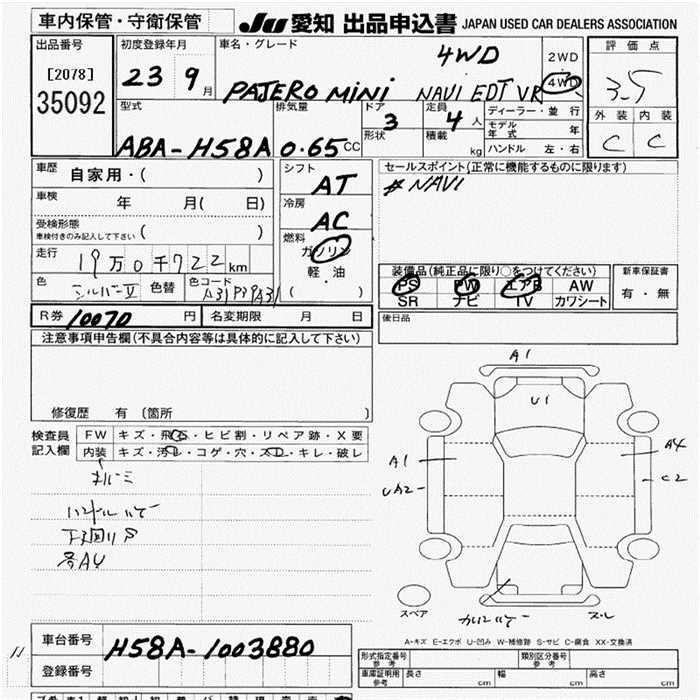 車内保管・守衛保管
JU 愛知 出品申込書 JAPAN USED CAR DEALERS ASSOCIATION
出品番号
[2078]
35092
初度登録年月
23 9月
車名・グレード
4WD
PAJERO MINI NAVI EDT VR
2WD
4WD
評価点
3.5
外装 内装
C C
型式
ABA-H58A
排気量
0.65 CC
ドア
3
形状
定員
4 人
積載 kg
ディーラー・並行
モデル年式 年
ハンドル 左・右
車歴
自家用・( )
車検
年 月( 日)
受検形態
車検付きのみ記入して下さい ( )
走行
19万0千722km
色
シルバーII
色替
色コード
A31P39A31
シフト
AT
冷房
AC
燃料
ガソリン
軽・油
( )
セールスポイント(正常に機能するものに限ります)
#NAVI
装備品(純正品に限り○をつけてください)
PS PW エアB AW
SR ナビ TV カワシート
新車保証書
有・無
後日品
R券 10070 円 名変期限 月 日
注意事項申告欄(不具合内容等は具体的に記入して下さい)
修復歴 有 〔箇所 〕
検査員記入欄
FW キズ・飛石・ヒビ割・リペア跡・X要
内装 キズ・汚レ・コゲ・穴・スレ・キレ・破レ
ハンドル
下廻りS
各A4
A1
U1
A1
UA2
A4
C2
スペア
スレ
A-キズ E-エクボ U-凹み W-補修跡 S-サビ C-腐食 XX-交換済
車台番号 H58A-1003880
登録番号
形式指定番号 参考
類別区分番号 参考
車庫証明用 参考 長さ cm 幅 cm 高さ cm